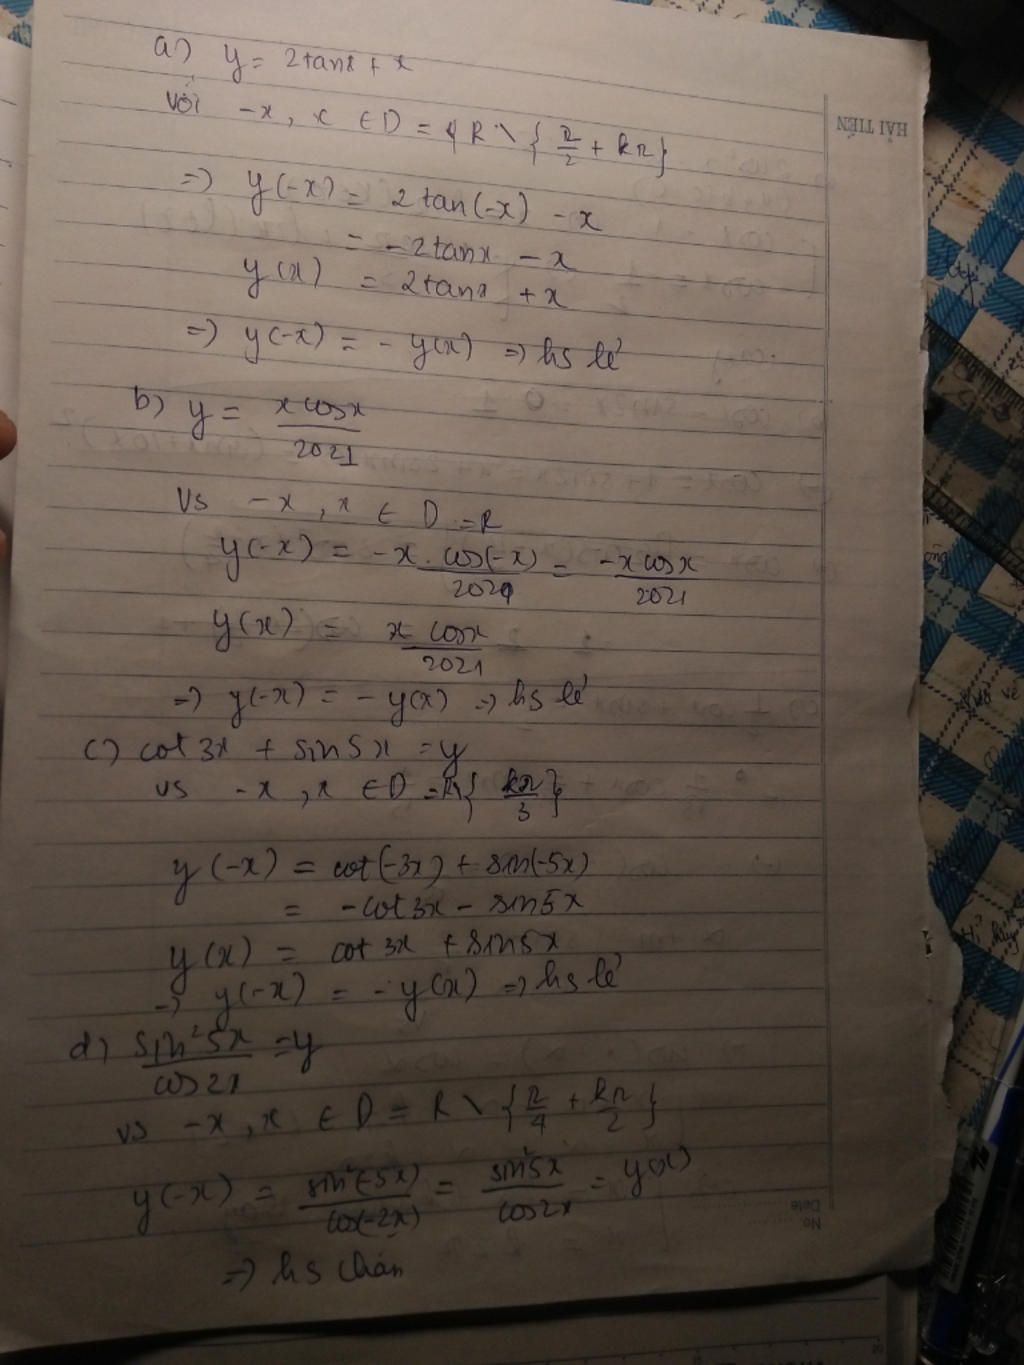 a) y = 2tanx + x
Với -x, x ∈ D = R \ { π/2 + kπ }
=> y(-x) = 2tan(-x) - x
= -2tanx - x
y(x) = 2tanx + x
=> y(-x) = -y(x) => hs lẻ
b) y = xcosx / 2021
Vs -x, x ∈ D = R
y(-x) = -x.cos(-x) / 2021 = -xcosx / 2021
y(x) = x cosx / 2021
=> y(-x) = -y(x) => hs lẻ
c) cot3x + sin5x = y
vs -x, x ∈ D = R \ { kπ/3 }
y(-x) = cot(-3x) + sin(-5x)
= -cot3x - sin5x
y(x) = cot3x + sin5x
=> y(-x) = -y(x) => hs lẻ
d) sin²5x / cos2x = y
vs -x, x ∈ D = R \ { π/4 + kπ/2 }
y(-x) = sin²(-5x) / cos(-2x) = sin²5x / cos2x = y(x)
=> hs chẵn
HẢI TIẾN
No.
Date